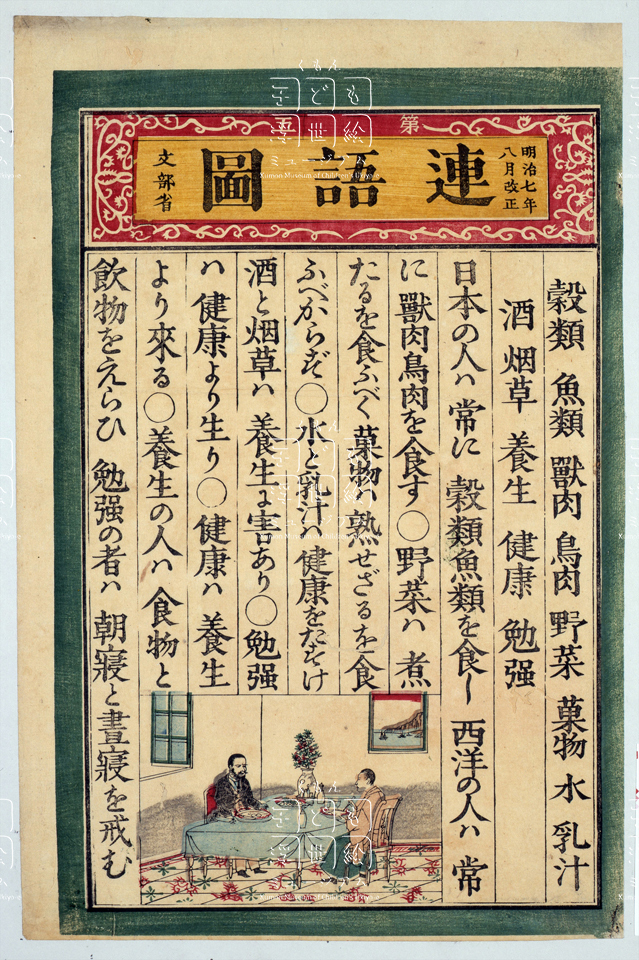 第五
連語圖
明治七年
八月改正
文部省
穀類 魚類 獸肉 鳥肉 野菜 菓物 水 乳汁
酒 烟草 養生 健康 勉强
日本の人ハ 常に 穀類魚類を食し 西洋の人ハ 常
に 獸肉鳥肉を食す○野菜ハ 煮
たるを食ふべく 菓物ハ 熟せざるを食
ふべからず○水と乳汁ハ 健康をたすけ
酒と烟草ハ 養生に害あり○勉强
ハ 健康より生り○健康ハ 養生
より來る○養生の人ハ 食物と
飲物をえらひ 勉强の者ハ 朝寢と晝寢を戒む
くもん
子ども
浮世絵
ミュージアム
Kumon Museum of Children's Ukiyo-e